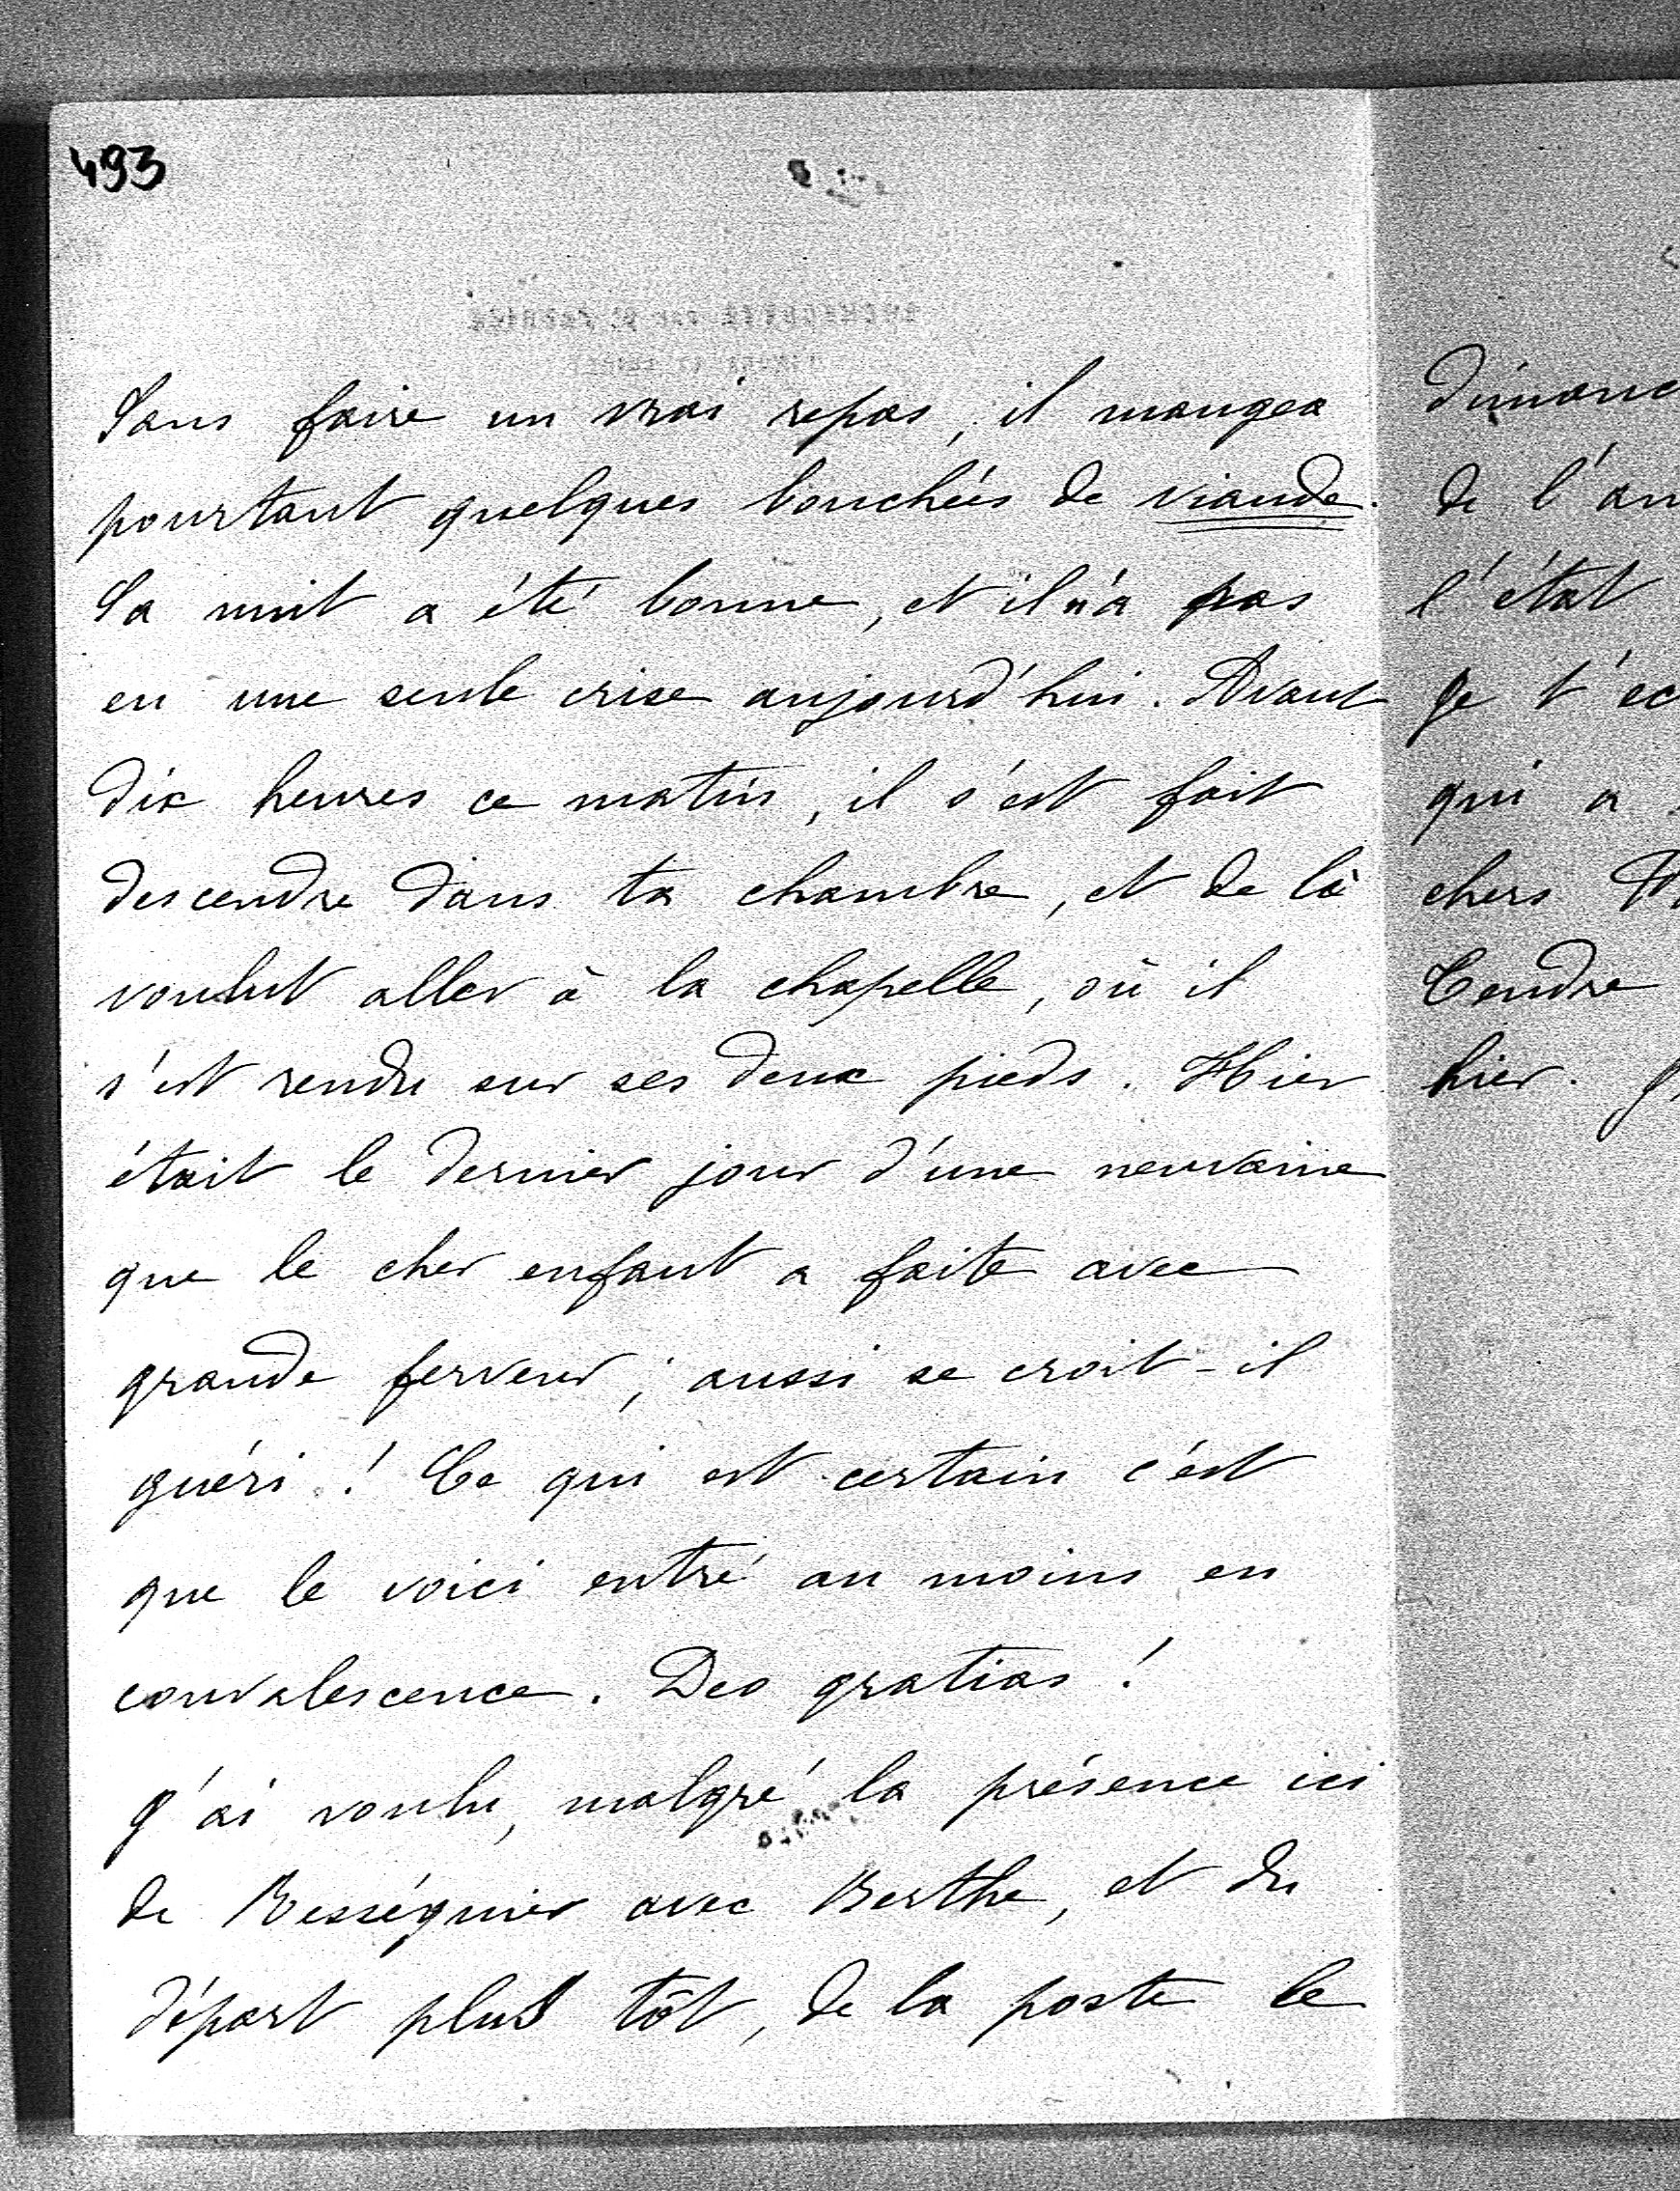 493
Sans faire un vrai repas, il mangea
pourtant quelques bouchées de viande.
Sa nuit a été bonne, et il n'a pas
eu une seule crise aujourd'hui. Avant
dix heures ce matin, il s'est fait
descendre dans ta chambre, et de là
voulut aller à la chapelle, où il
s'est rendu sur ses deux pieds. Hier
était le dernier jour d'une neuvaine
que le cher enfant a faite avec
grande ferveur; aussi se croit-il
guéri! Ce qui est certain c'est
que le voici entré au moins en
convalescence. Deo gratias!
J'ai voulu, malgré la présence ici
de Rességuier avec Berthe, et du
départ plus tôt, de la poste le
de l'
l'état
je t'
qui a
chers
Cendre
hier.